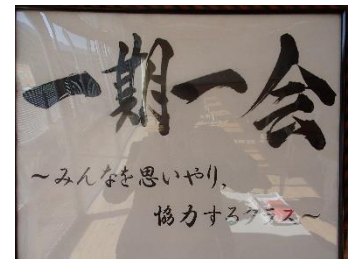 一期一会
～みんなを思いやり、
協力するクラス～